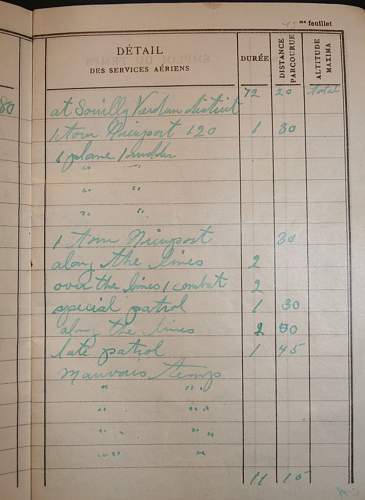 me feuillet
DÉTAIL
DES SERVICES AÉRIENS
DURÉE
DISTANCE PARCOURUE
ALTITUDE MAXIMA
80
at Souilly Verdun district 72 20 total
1 tour Nieuport 120 1 30
1 plane
" "
" "
" "
1 tour Nieuport 30
along the lines 2
over the lines 1 combat 2
special patrol 1 30
along the lines 2 00
late patrol 1 45
Mauvais temps
" " "
" " "
" " "
" " "
11 15